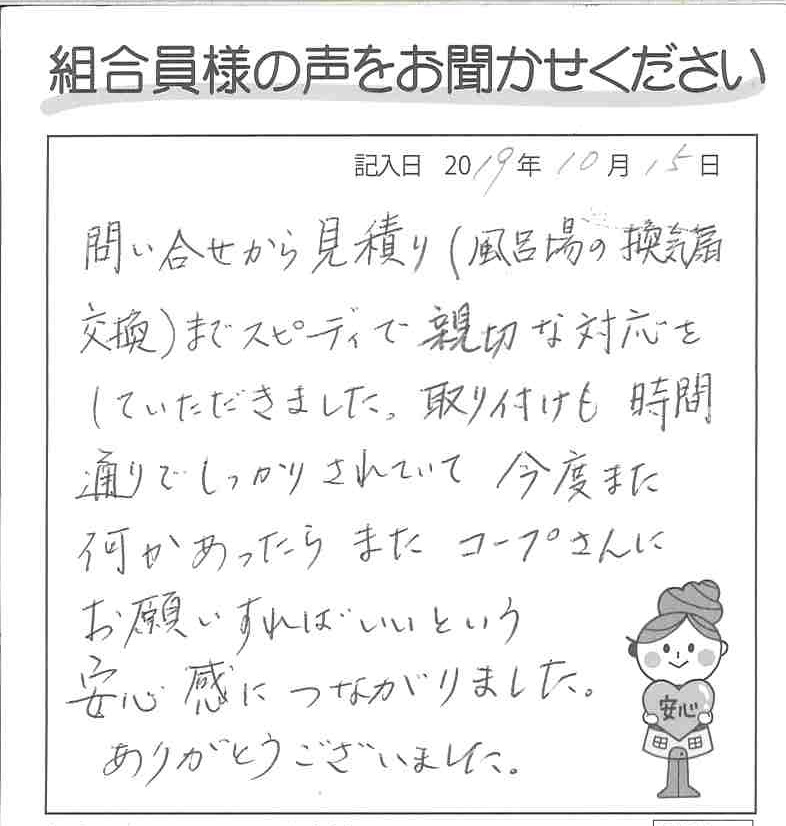 組合員様の声をお聞かせください
記入日 2019年10月15日
問い合せから見積り(風呂場の換気扇
交換)までスピーディで親切な対応を
していただきました。取り付けも 時間
通りでしっかりされていて 今度また
何かあったら また コープさんに
お願いすればいいという
安心感につながりました。
ありがとうございました。
安心